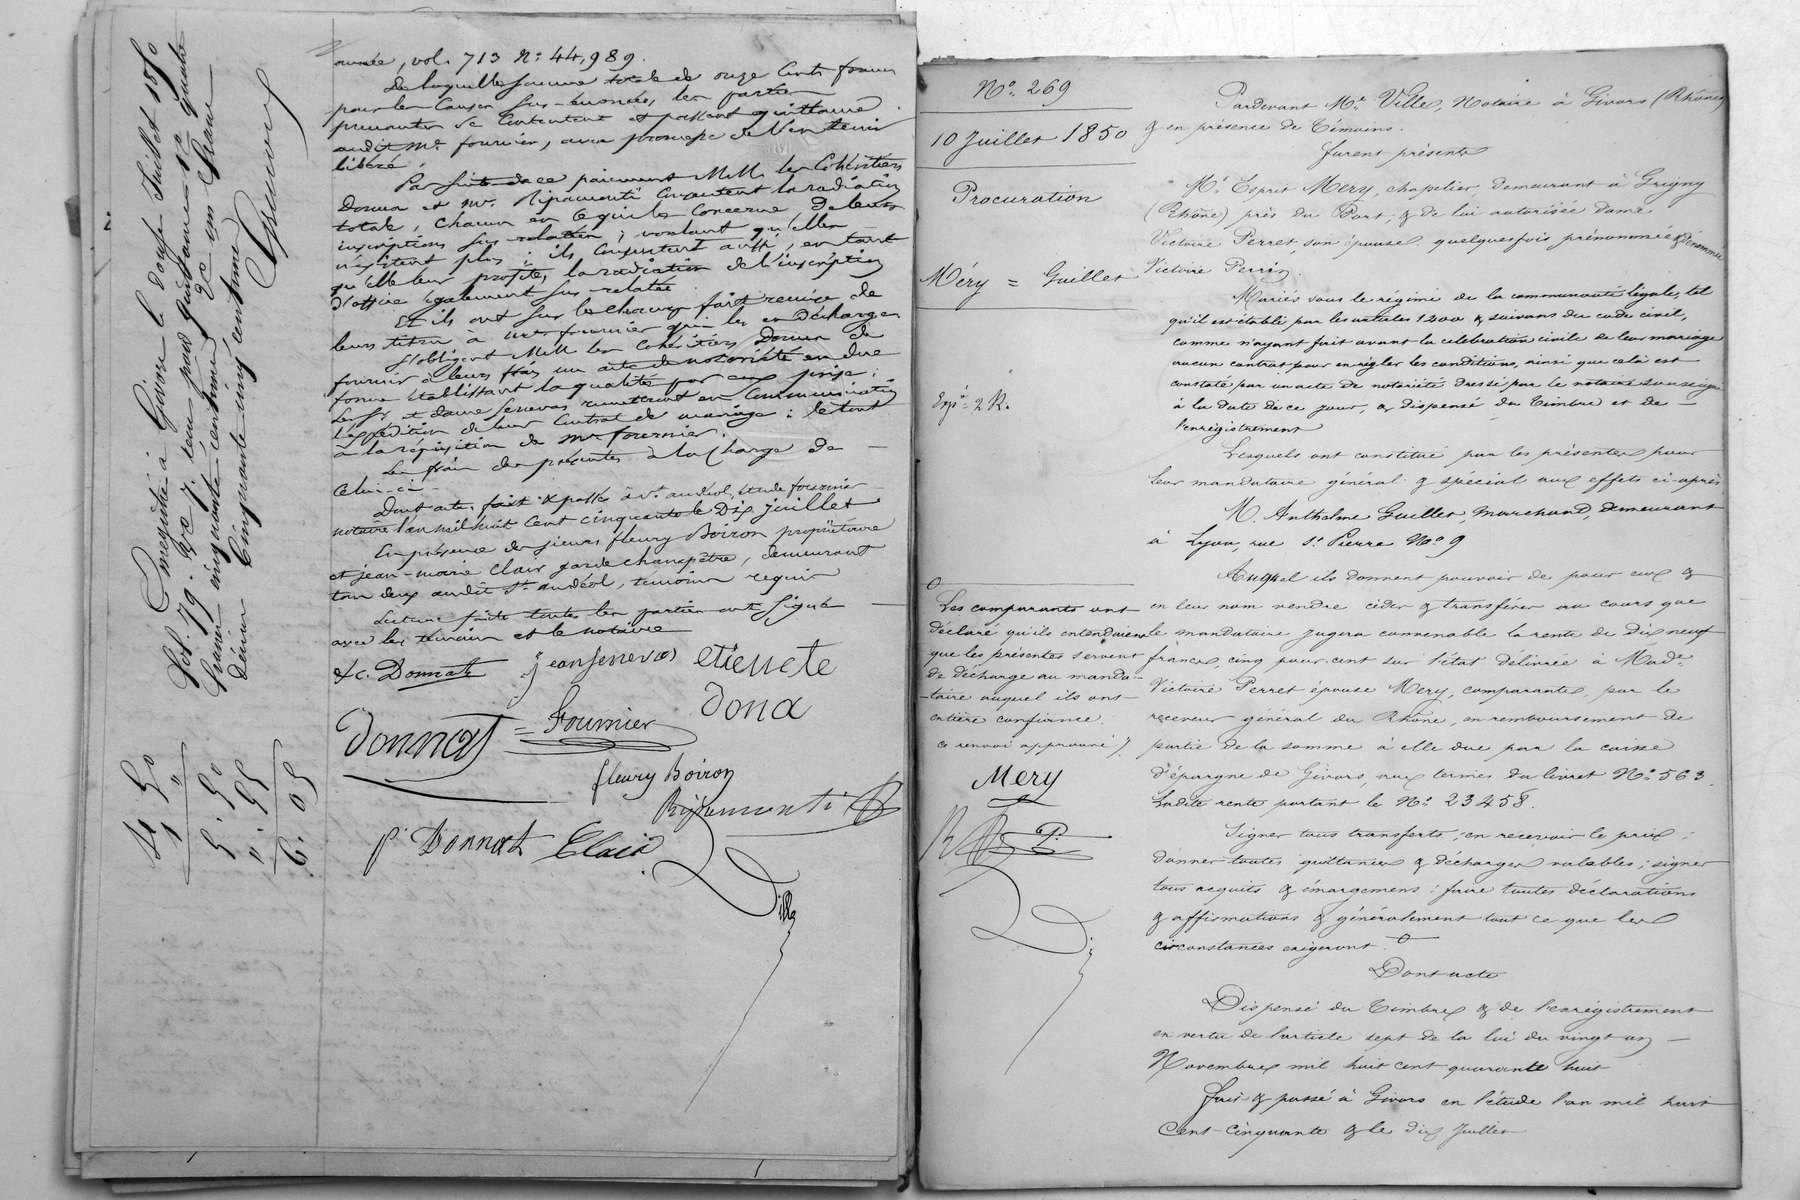 année, vol. 713 N° 44,989.
De laquelle somme totale de onze cents francs
pour les causes sus-énoncées, les parties
prenantes se contentent et passent quittance
audit Mr fournier, avec promesse de l'en tenir
libéré.
Par suite de ce paiement MM. les Cohéritiers
Donna et Mr. Ripamonti consentent la radiation
totale, chacun en ce qui les concerne de leurs
inscriptions sus-relatées, voulant qu'elles
n'existent plus ; ils consentent aussi, en tant
qu'elle leur profite, la radiation de l'inscription
d'office également sus-relatée.
Et ils ont sur le champ fait remise de
leurs titres à Mr fournier qui les en décharge
S'obligent MM les Cohéritiers Donna de
fournir à leurs frais un acte de notoriété en due
forme établissant la qualité par eux prise ;
les Sr et dame Senevas remettront en communication
l'expédition de leur contrat de mariage : le tout
à la réquisition de Mr fournier.
Les frais des présentes à la charge de
celui-ci.
Dont acte, fait & passé à St andéol, étude fournier
notaire l'an mil huit cent cinquante le Dix juillet
En présence des sieurs fleury Boiron propriétaire
et jean-marie Clair garde champêtre, demeurant
tous deux audit St andéol, témoins requis
Lecture faite toutes les parties ont signé
avec les témoins et le notaire
Donnat jean senevas etiennete
dona
Donnat Fournier
fleury Boiron
Ripamonti
p. Donnat Clair
Ville
Enregistré à Givors le douze Juillet 1850
fol. 79. Rc 7. reçu pour quittance 1°
2° un franc
Décime Cinquante cinq centimes
4 50
1 "
5. 50
". 55
6. 05
N°. 269
10 Juillet 1850
Procuration
Méry = Guillet
Exp°. 2 R.
Pardevant Me. Ville, Notaire à Givors (Rhône)
& en présence de témoins.
furent présents
Mr. Esprit Mery, chapelier demeurant à Grigny
(Rhône) près du Port, & de lui autorisée dame
Victoire Perret, son épouse, quelquesfois prénommée & dénommée
Victoire Perrin.
Mariés sous le régime de la communauté légale, tel
qu'il est établi par les articles 1400 & suivans du code civil,
comme n'ayant fait avant la célébration civile de leur mariage
aucun contrat pour en régler les conditions, ainsi que cela est
constaté par un acte de notoriété dressé par le notaire soussigné
à la date de ce jour, & dispensé du timbre et de
l'enregistrement
Lesquels ont constitué par les présentes pour
leur mandataire général & spécial aux effets ci-après
M. Anthelme Guillet, marchand, demeurant
à Lyon, rue St. Pierre N° 9
Auquel ils donnent pouvoir de pour eux &
en leur nom vendre céder & transférer au cours que
le mandataire jugera convenable la rente de dix neuf
francs, cinq pour cent sur l'état délivrée à Made.
Victoire Perret épouse Mery, comparante, par le
receveur général du Rhône, en remboursement de
partie de la somme à elle due par la caisse
d'épargne de Givors, aux termes du livret N°. 563.
Ladite rente portant le N°. 23458.
Signer tous transferts ; en recevoir le prix ;
donner toutes quittances & décharges valables ; signer
tous acquits & émargemens ; faire toutes déclarations
& affirmations & généralement tout ce que les
circonstances exigeront.
Dont acte
Dispensé du timbre & de l'enregistrement
en vertu de l'article sept de la loi du vingt un
Novembre mil huit cent quarante huit
fait & passé à Givors en l'étude l'an mil huit
Cent-cinquante & le dix Juillet
Les comparants ont
déclaré qu'ils entendaient
que les présentes servent
de décharge au manda-
-taire auquel ils ont
entière confiance.
ce renvoi approuvé).
Mery
P.